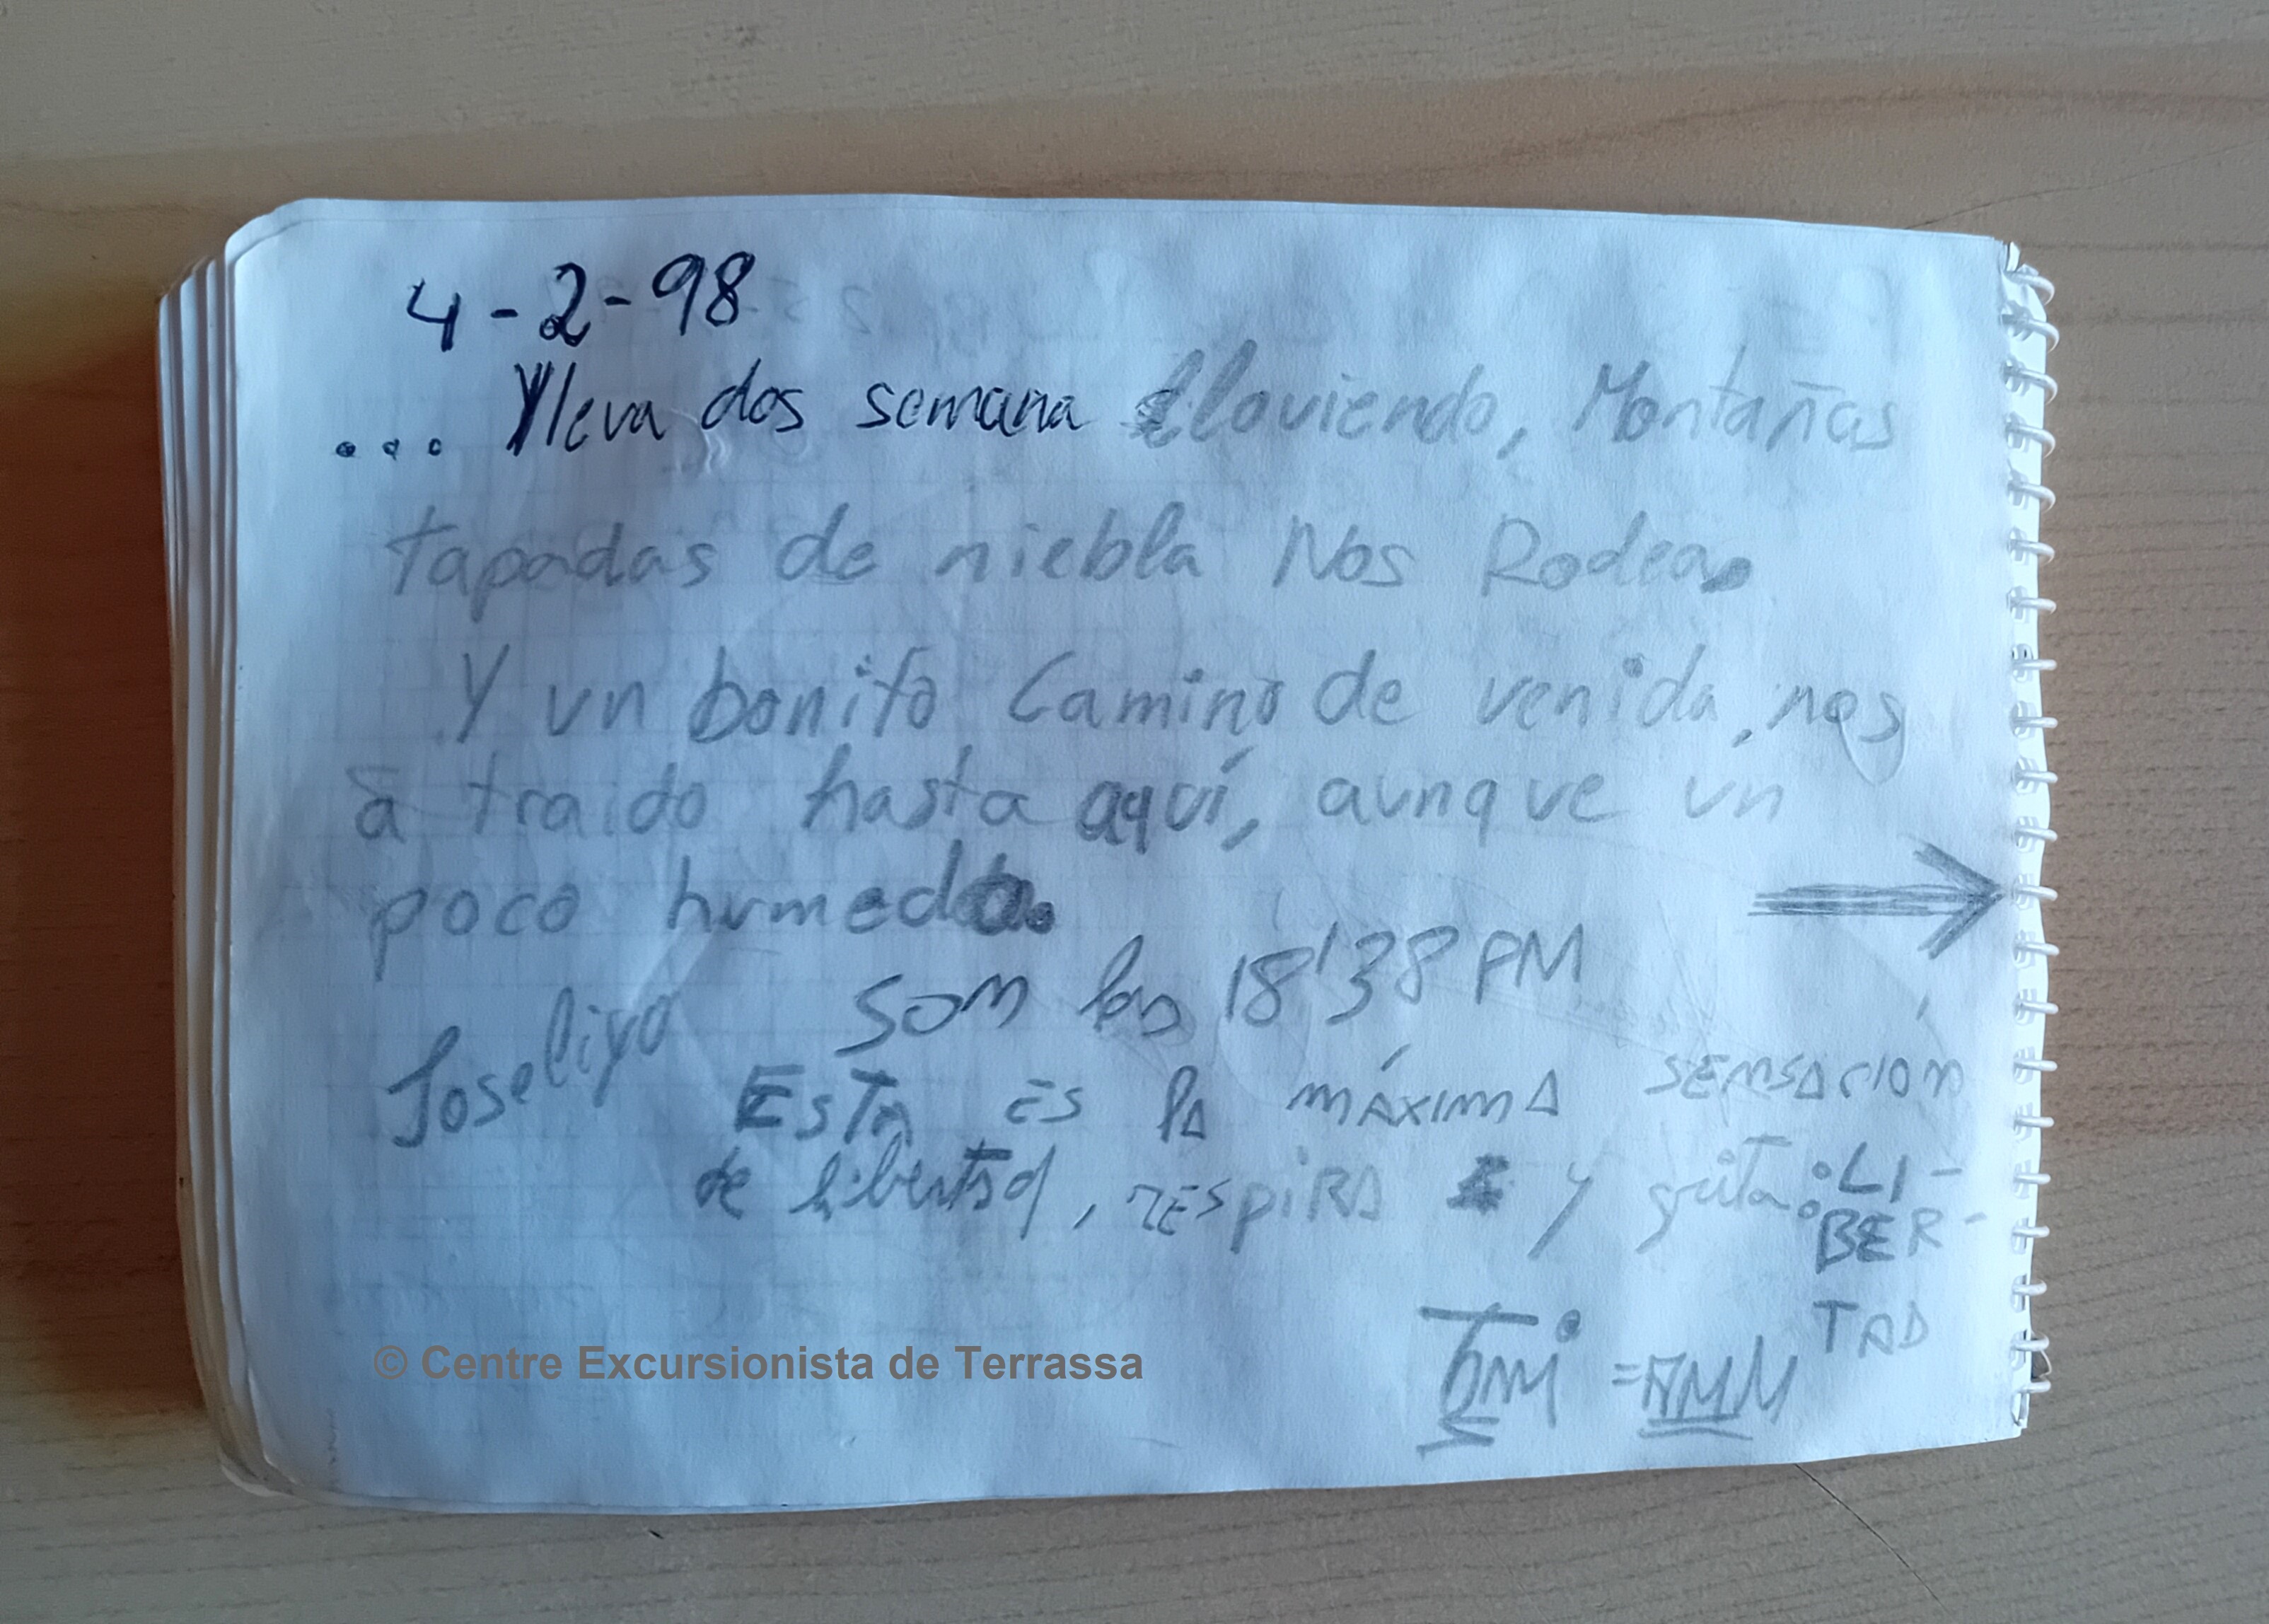 4-2-98
... lleva dos semana lloviendo, Montañas
tapadas de niebla Nos Rodea.
Y un bonito Camino de venida, nos
a traido hasta aquí, aunque un
poco humedo.
Son las 18'38 PM
Joseliyo
ESTA ES LA MÁXIMA SENSACIÓN
de libertad, RESPIRA y grita: LI-
BER-
TAD
© Centre Excursionista de Terrassa